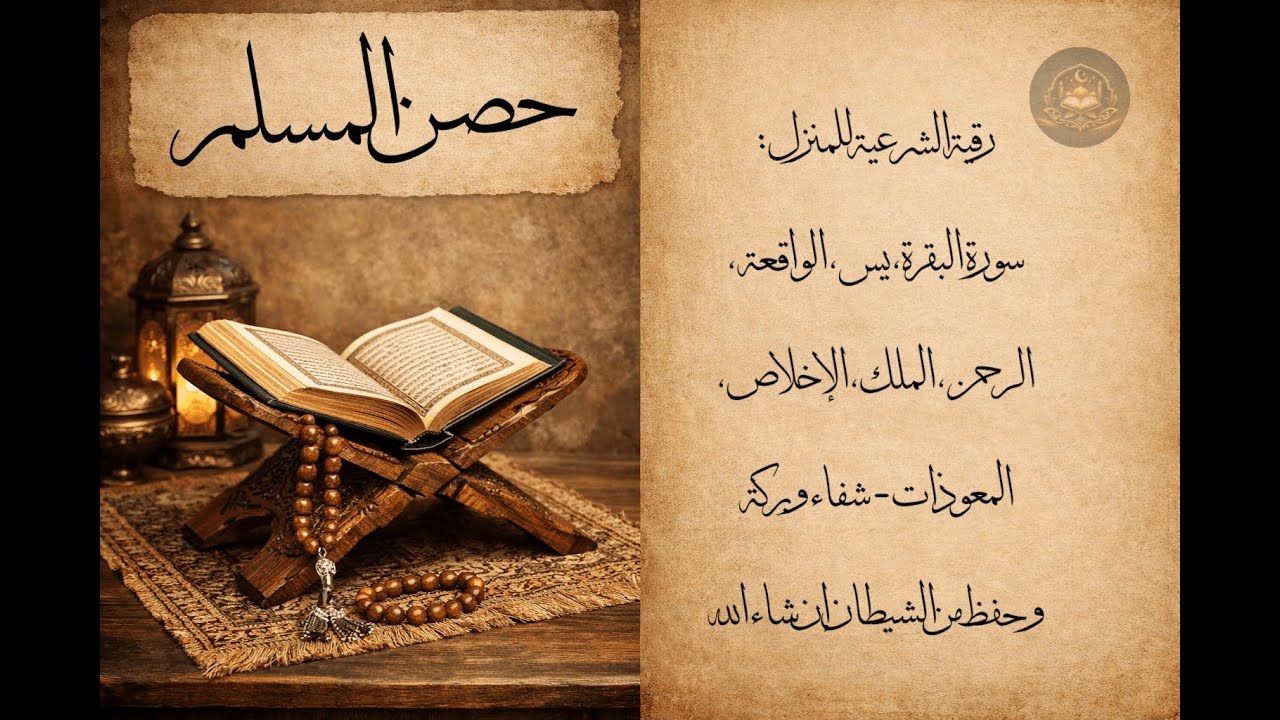 حصن المسلم
رقية الشرعية للمنزل:
سورة البقرة، يس، الواقعة،
الرحمن، الملك، الإخلاص،
المعوذات - شفاء وبركة
وحفظ من الشيطان إن شاء الله